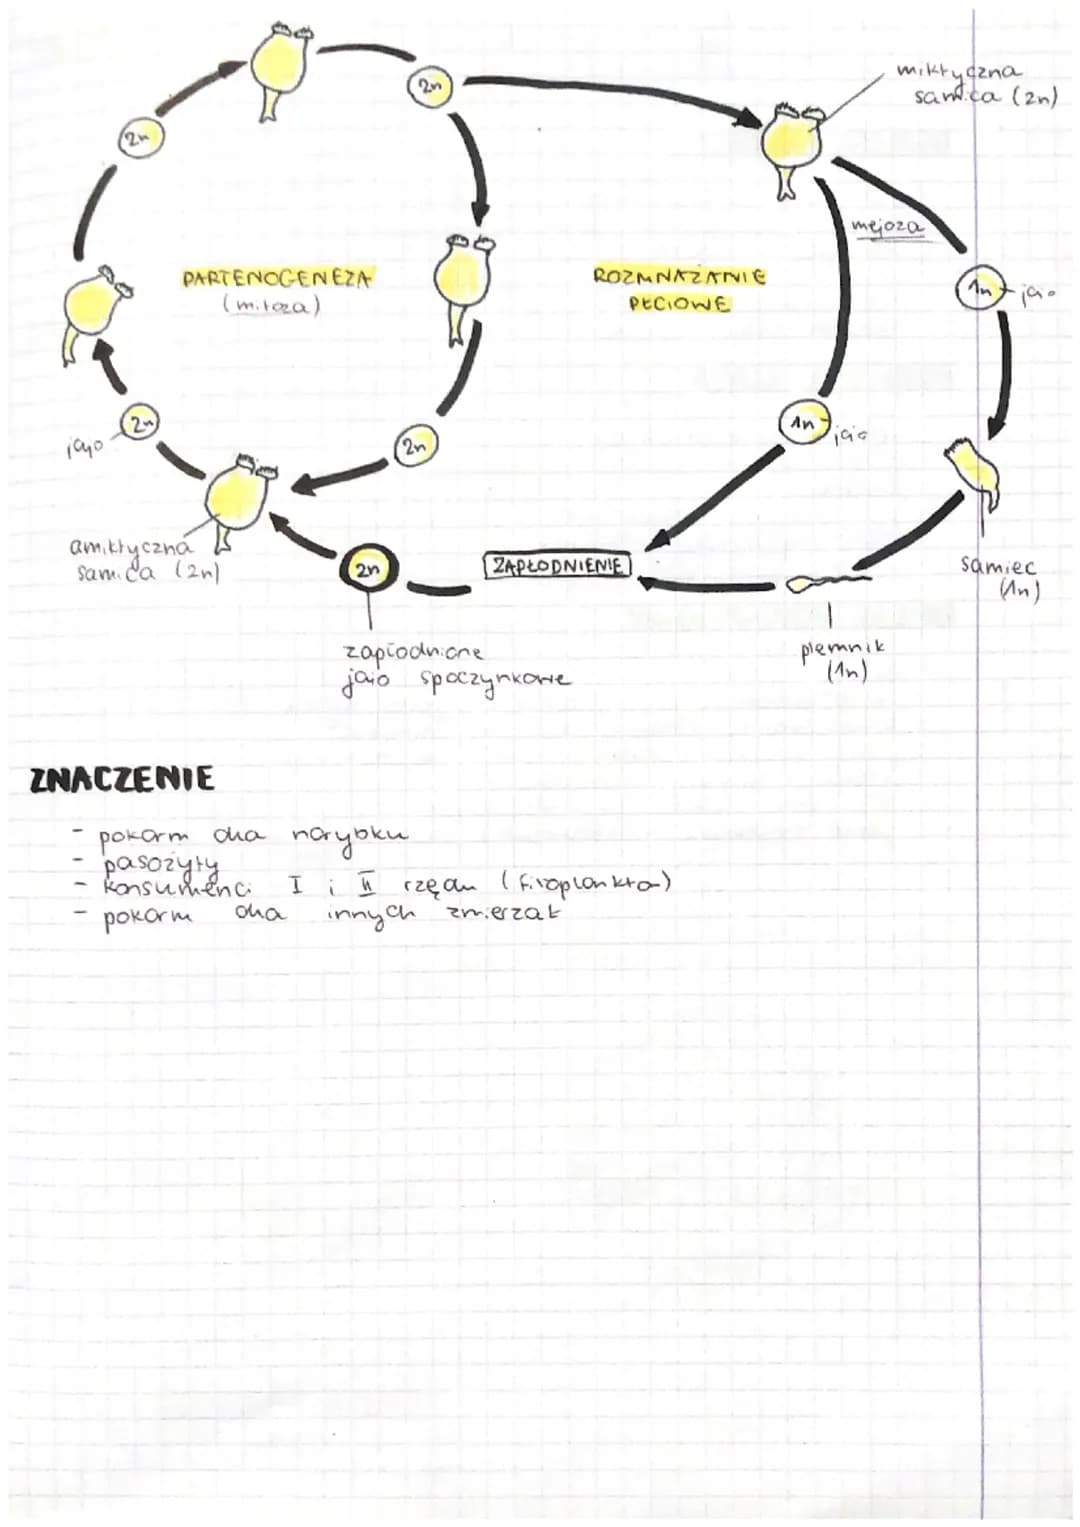 2n
miktyczna
samica (2n)
2n
mejoza
PARTENOGENEZA
(mitoza)
ROZMNAŻANIE
PŁCIOWE
1n
jajo
2n
jajo
2n
1n
jajo
amiktyczna
samica (2n)
2n
ZAPŁODNIENIE
samiec
(1n)
zapłodnione
jajo spoczynkowe
plemnik
(1n)
ZNACZENIE
- pokarm dla narybku
- pasożyty
- konsumenci I i II rzędu (fitoplankton)
- pokarm dla innych zwierząt